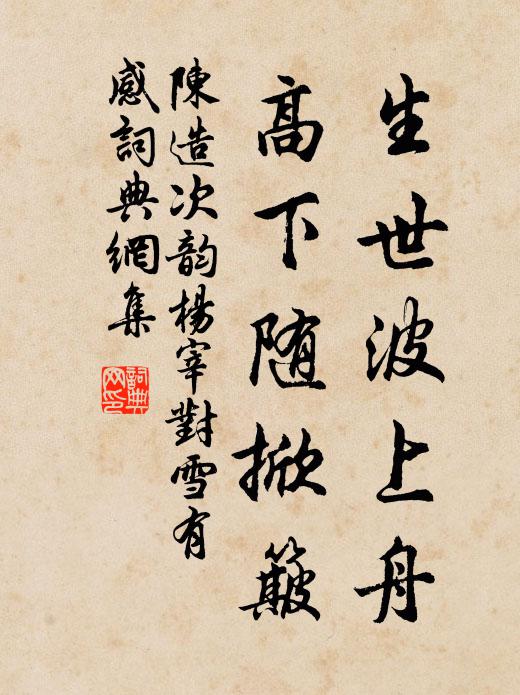 生世波上舟
高下随掀簸
陳造次韵楊宰對雪有
感詞典網集
詞典
网印